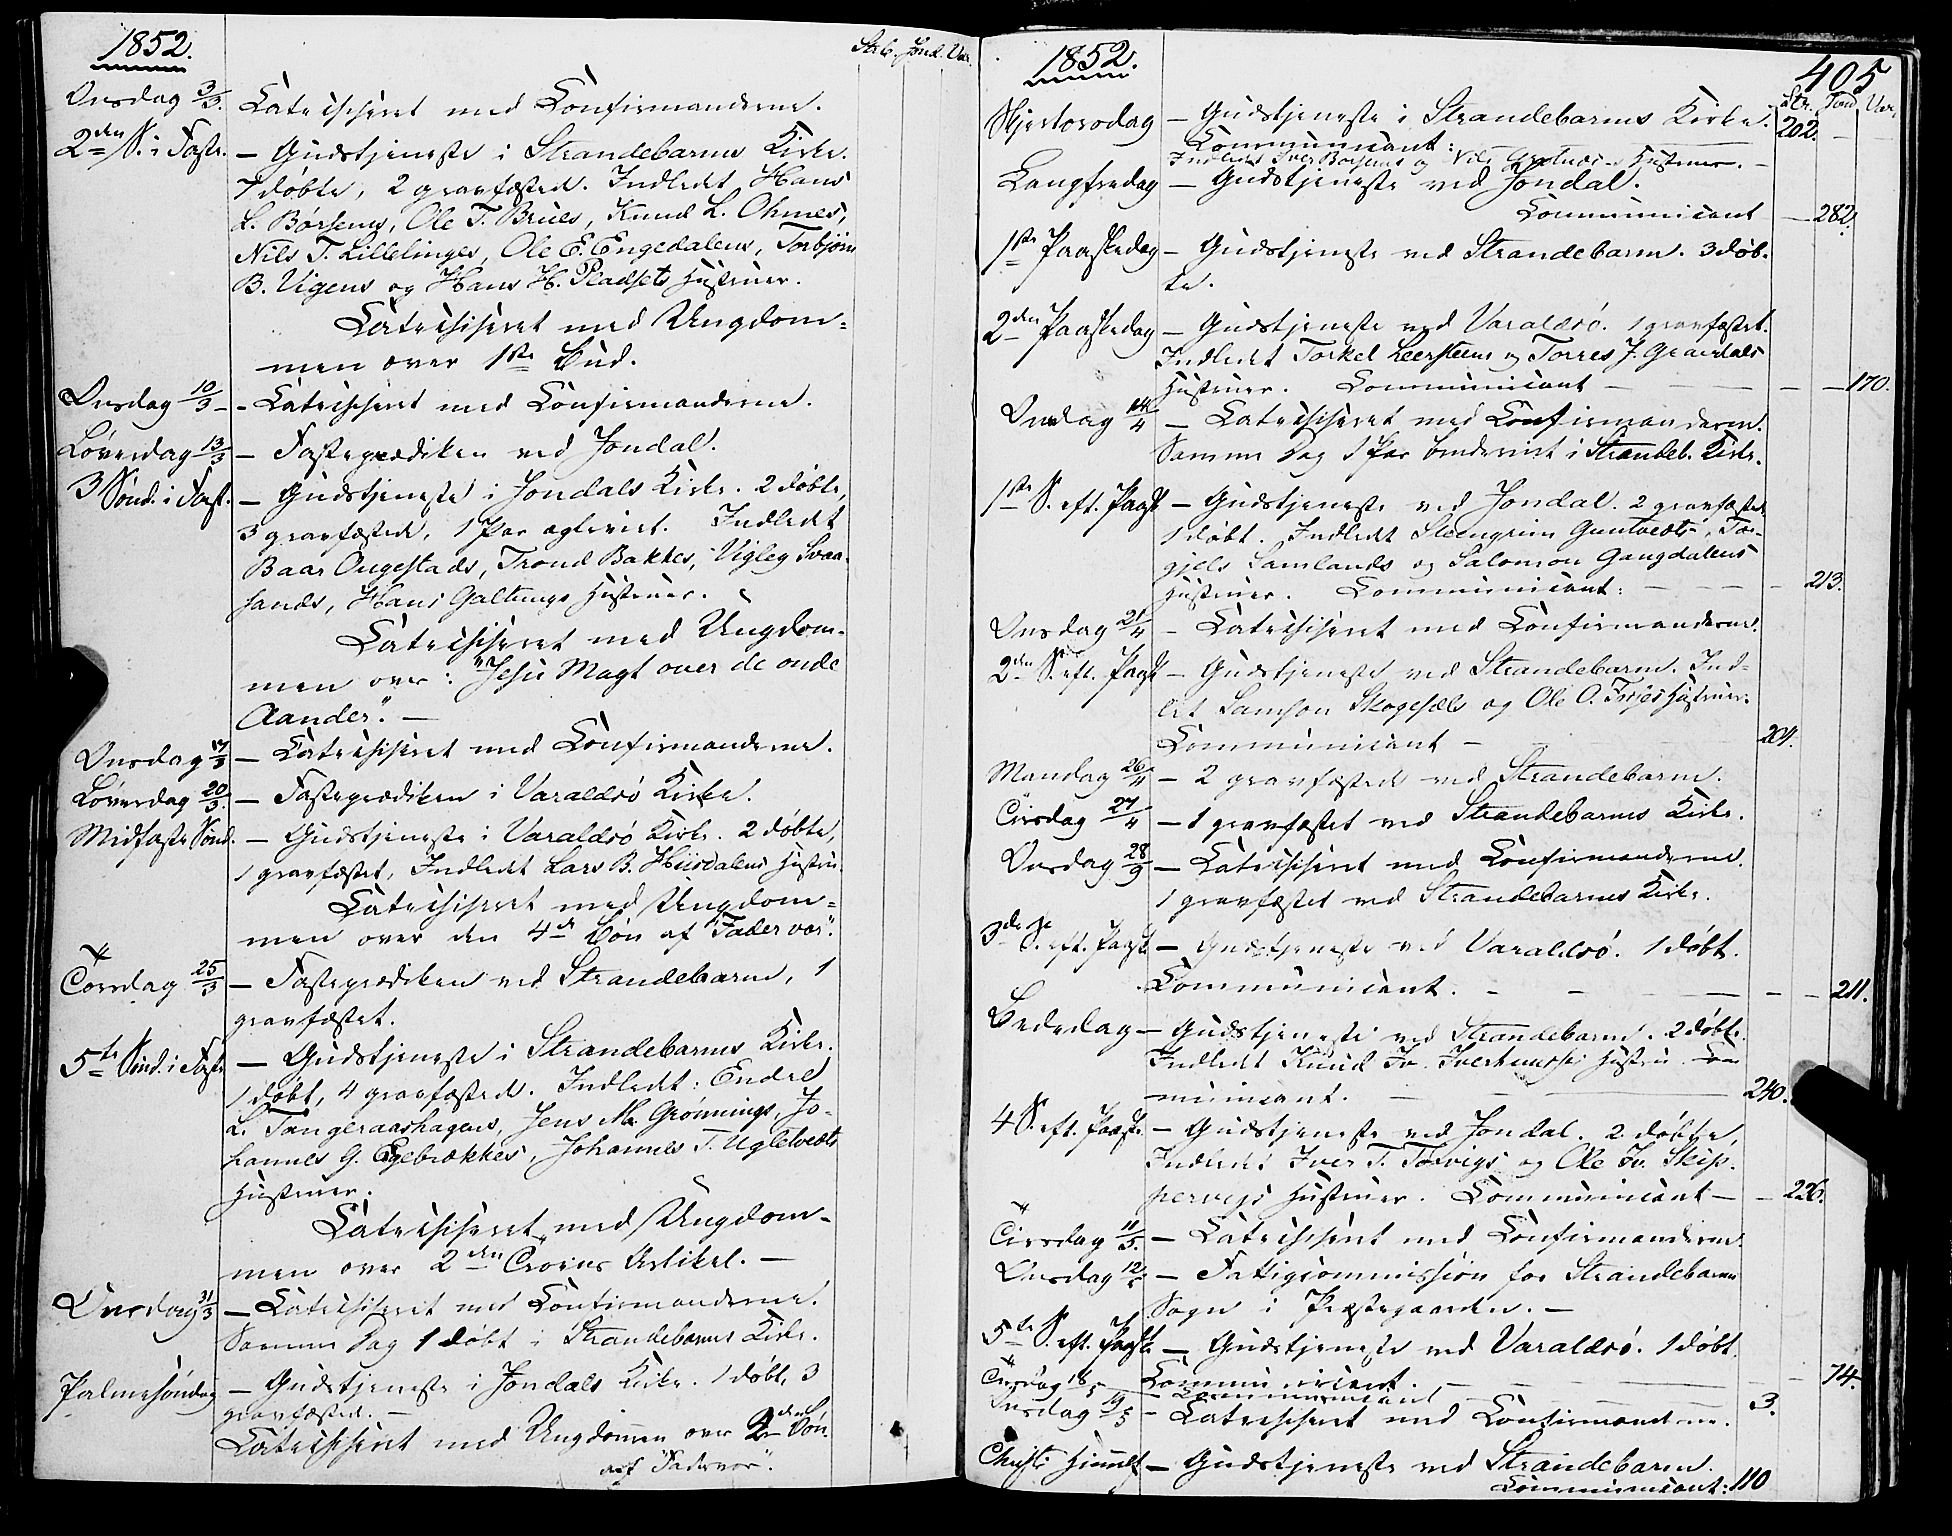 1852.
Strb. Jond. Var.
Onsdag 3/3. Catechiseret med Confirmanderne.
2den S. i Faste. — Gudstjeneste i Strandebarms Kirke.
7 døbte, 2 gravfæstede. Indledet Hans
L. Børsems, Ole T. Brues, Knud L. Ohmes,
Nils T. Lillelinges, Ole E. Engedalens, Torbjørn
B. Vigens og Hans H. Pladsets Hustruer.
Catechiseret med Ungdom-
men over 1ste Bud.
Onsdag 10/3 — Catechiseret med Confirmanderne.
Løverdag 13/3 — Fasteprædiken ved Jondal.
3 Sønd. i Fast. — Gudstjeneste i Jondals Kirke. 2 døbte,
3 gravfæstede, 1 Par egteviet. Indledet
Baar Augestads, Trond Bakkes, Vigleg Svaa-
sands, Hans Galtungs Hustruer.
Catechiseret med Ungdom-
men over: "Jesu Magt over de onde
Aander". —
Onsdag 17/3 — Catechiseret med Confirmanderne.
Løverdag 20/3. — Fasteprædiken i Varaldsö Kirke.
Midfaste Sønd. — Gudstjeneste i Varaldsö Kirke. 2 døbte,
1 gravfæstet, Indledet Lars B. Huusdalens Hustru.
Catechiseret med Ungdom-
men over den 4de Bøn af "Fader vor".
Torsdag 25/3 — Fasteprædiken ved Strandebarm, 1
gravfæstet.
5te Sønd. i Faste — Gudstjeneste i Strandebarms Kirke.
1 døbt, 4 gravfæstede. Indledet: Endre
L. Tangeraashagens, Jens M. Grønnings, Jo-
hannes G. Egebrækkes, Johannes T. Ugletvedts
Hustruer.
Catechiseret med Ungdom-
men over 2den Troens Artikel. —
Onsdag 31/3 — Catechiseret med Confirmanderne.
Samme Dag 1 døbt i Strandebarms Kirke.
Palmesøndag — Gudstjeneste i Jondals Kirke. 1 døbt, 3
gravfæstede. —
Catechiseret med Ungdommen over 2den Bøn
af "Fadervor".
1852.
405
Str. Jond. Var.
Skjertorsdag — Gudstjeneste i Strandebarms Kirke.
Communicant: 202. —
Indledet Iver Børsems og Nils Hustruer. —
Langfredag — Gudstjeneste ved Jondal.
Communicant — 282.
1ste Paaskedag — Gudstjeneste ved Strandebarm. 3 døb-
te.
2den Paaskedag — Gudstjeneste ved Varaldsö. 1 gravfæstet.
Indledet Torkel Leersteens og Torres J. Gravdals
Hustruer. Communicant — — — 170.
Onsdag 14/4 — Catechiseret med Confirmanderne.
Samme Dag 1 Par brudeviet i Strandeb. Kirke.
1ste S. eft. Paaske — Gudstjeneste ved Jondal. 2 gravfæstede
1 døbt. Indledet Steengrim Guntvedts, Tor-
gjels Samlands og Salomon Gangdalens
Hustruer. Communicant: — — — 213.
Onsdag 21/4 — Catechiseret med Confirmanderne.
2den S. eft. Paaske — Gudstjeneste ved Strandebarm. Ind-
let Samson Skogesæls og Ole O. Hustruer.
Communicant — 201.
Mandag 26/4 — 2 gravfæstede ved Strandebarm.
Tirsdag 27/4 — 1 gravfæstet ved Strandebarms Kirke.
Onsdag 28/9 — Catechiseret med Confirmanderne.
1 gravfæstet ved Strandebarms Kirke.
3de S. eft. Paaske — Gudstjeneste ved Varaldsö. 1 døbt.
Communicant. — — — — 211.
Bededag — Gudstjeneste ved Strandebarm. 2 døbte.
Indledet Knud Hustru
municant. — — 240.
4 S. eft. Paaske — Gudstjeneste ved Jondal. 2 døbte,
Indledet Iver T. Torvigs og Ole Iv. Skip-
pervigs Hustruer. Communicant — — 226.
Tirsdag 11/5. — Catechiseret med Confirmanderne.
Onsdag 12/5 — Fattigcommission for Strandebarm
Sogn i Præstegaarden. —
5te S. eft. Paaske — Gudstjeneste ved Varaldsö. 1 døbt.
Communicant. — — — 74.
Tirsdag 18/5 — Communicant — 3.
Onsdag 19/5 — Catechiseret med Confirmanderne.
Christi Himmelf. — Gudstjeneste ved Strandebarm.
Communicant: 110